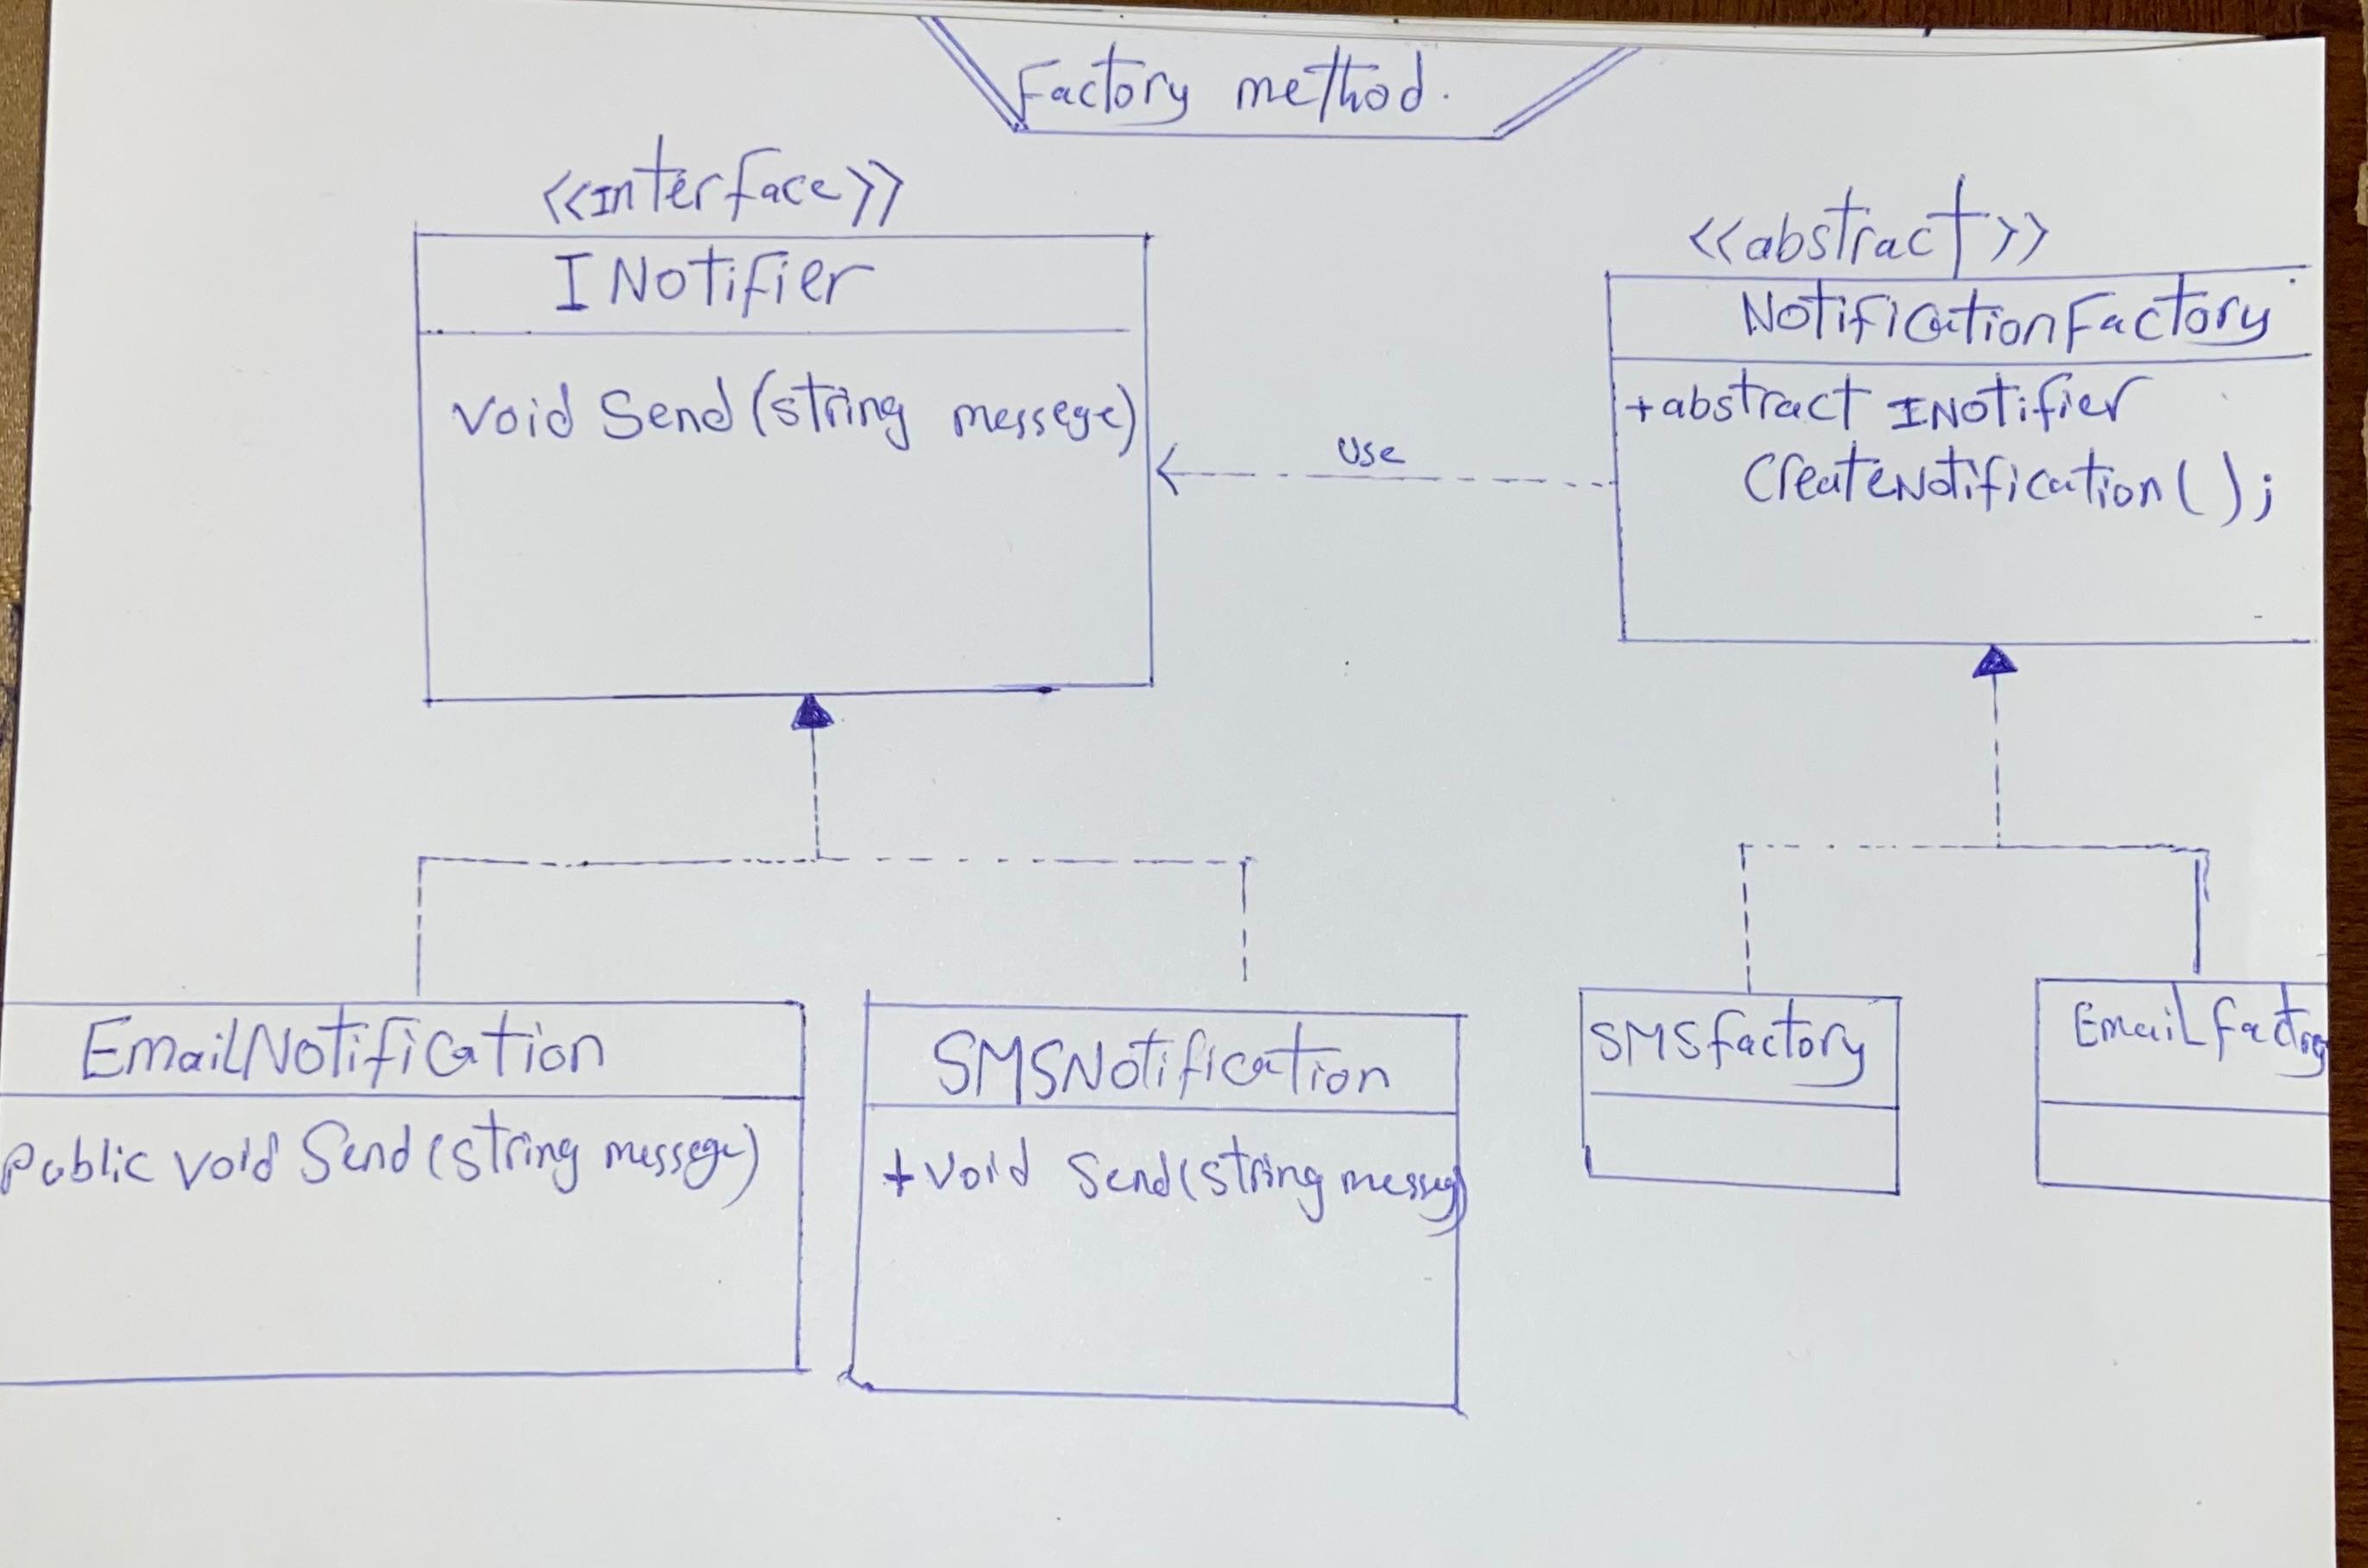 Factory method.
<<interface>>
INotifier
void Send(string messege)
use
<<abstract>>
NotificationFactory
+abstract INotifier
CreateNotification();
EmailNotification
public void Send(string messege)
SMSNotification
+void Send(string messeg)
SMSfactory
Emailfactory